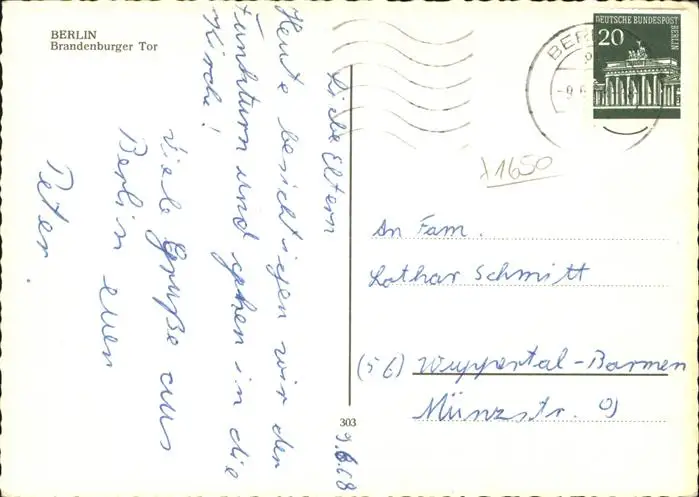 BERLIN
Brandenburger Tor
Liebe Eltern
Heute besichtigen wir den
Funkturm und gehen in die
Kirche!
Viele Grüße aus
Berlin euer
Peter.
9.6.68
303
DEUTSCHE BUNDESPOST
BERLIN
20
BER
-9.6
1650
An Fam.
Lothar Schmitt
(56) Wuppertal-Barmen
Münzstr. 9